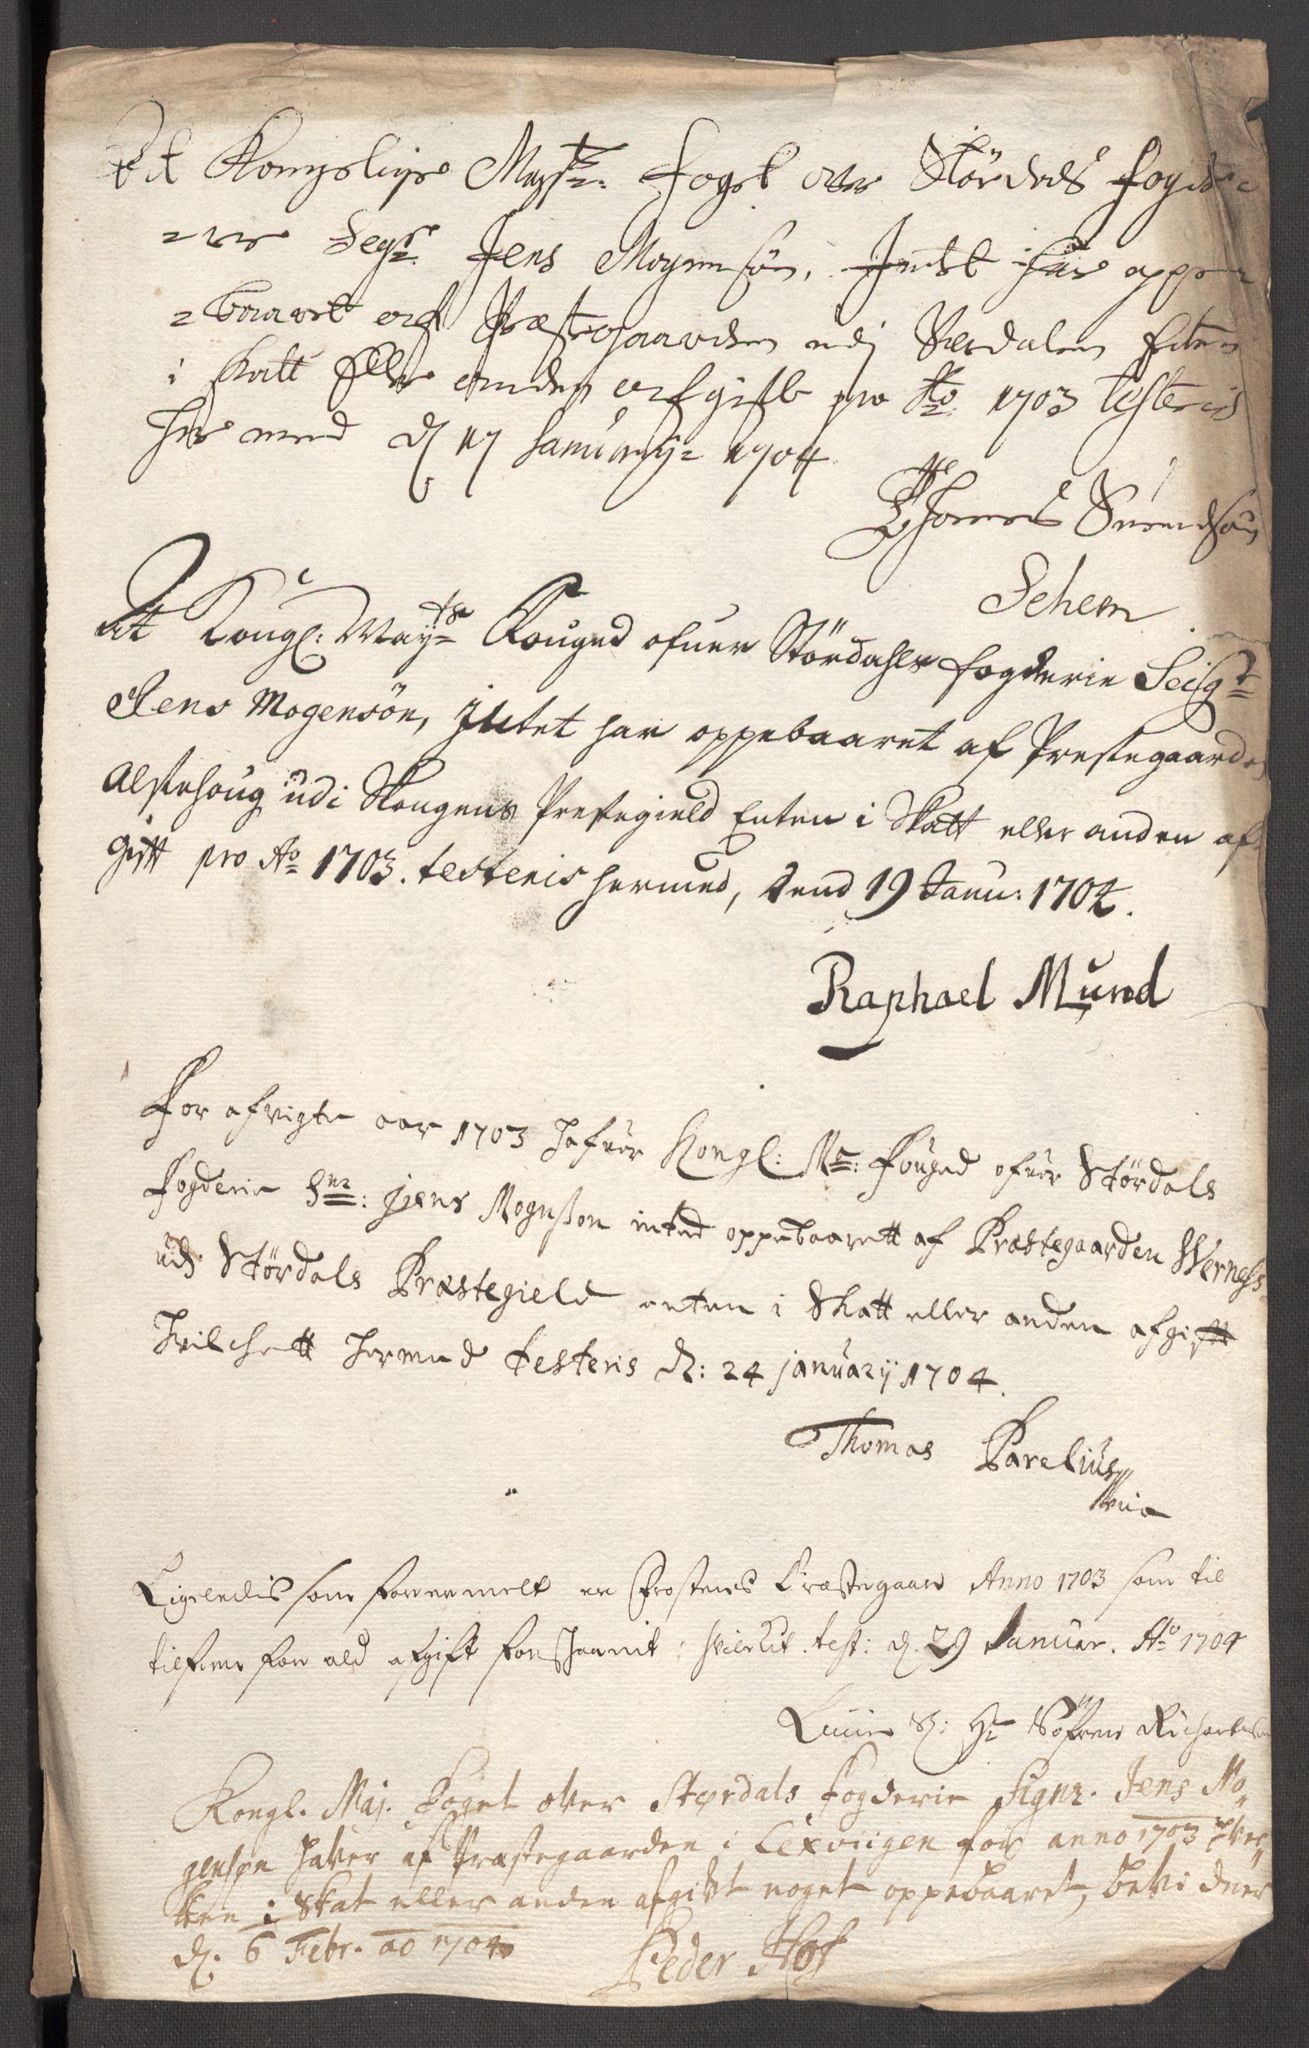 At Kongelige Mayst: Fogt over Størdals fogde=
=rie Segr. Jens Mogensön, Intet har oppe=
=baaret af Præstegaarden udj Værdalen Enten
i skatt Eller anden afgift pro Ao: 1703 testeris
her med dj 17 Januarij 1704
Thomas
Schem
At Kongl: Mayts Fouged ofuer Stördahls fogderie Seigr
Jens Mogensön, intet har oppebaaret af Prestegaarden
Alstehoug udi Skougens Prestegield Enten i Skatt eller anden af=
gift pro Ao 1703. testeris hermed, dend 19 Janu: 1704.
Raphael Mund
For afvigte aar 1703 hafver Kongl: Ms: Fouged ofver Størdals
Fogderie Snr: Jens Mogenßon inted oppebaarett af Præstegaarden Werness
udj Størdals Præstegield enten i Skatt eller anden afgifft
hvilchett hermed testeris d: 24 januarij 1704.
Thomas Parelius
mia
Ligeledis som forermelt er Frostens Præstegaard Anno 1703 som til
for ald afgift forskaanit: hvilket test: d. 29 Januar. Ao 1704
Sl: Hr Söfren Richartsen
Kongl. Maj. Foget over Størdals Fogderie Signr. Jens Mo,,
gensøn haver af Præstegaarden i Lexviigen for anno 1703 hver,,
ken i Skat eller anden afgivt noget oppebaaret, bevidner
d. 6 Febr. ao 1704
Peder Hof